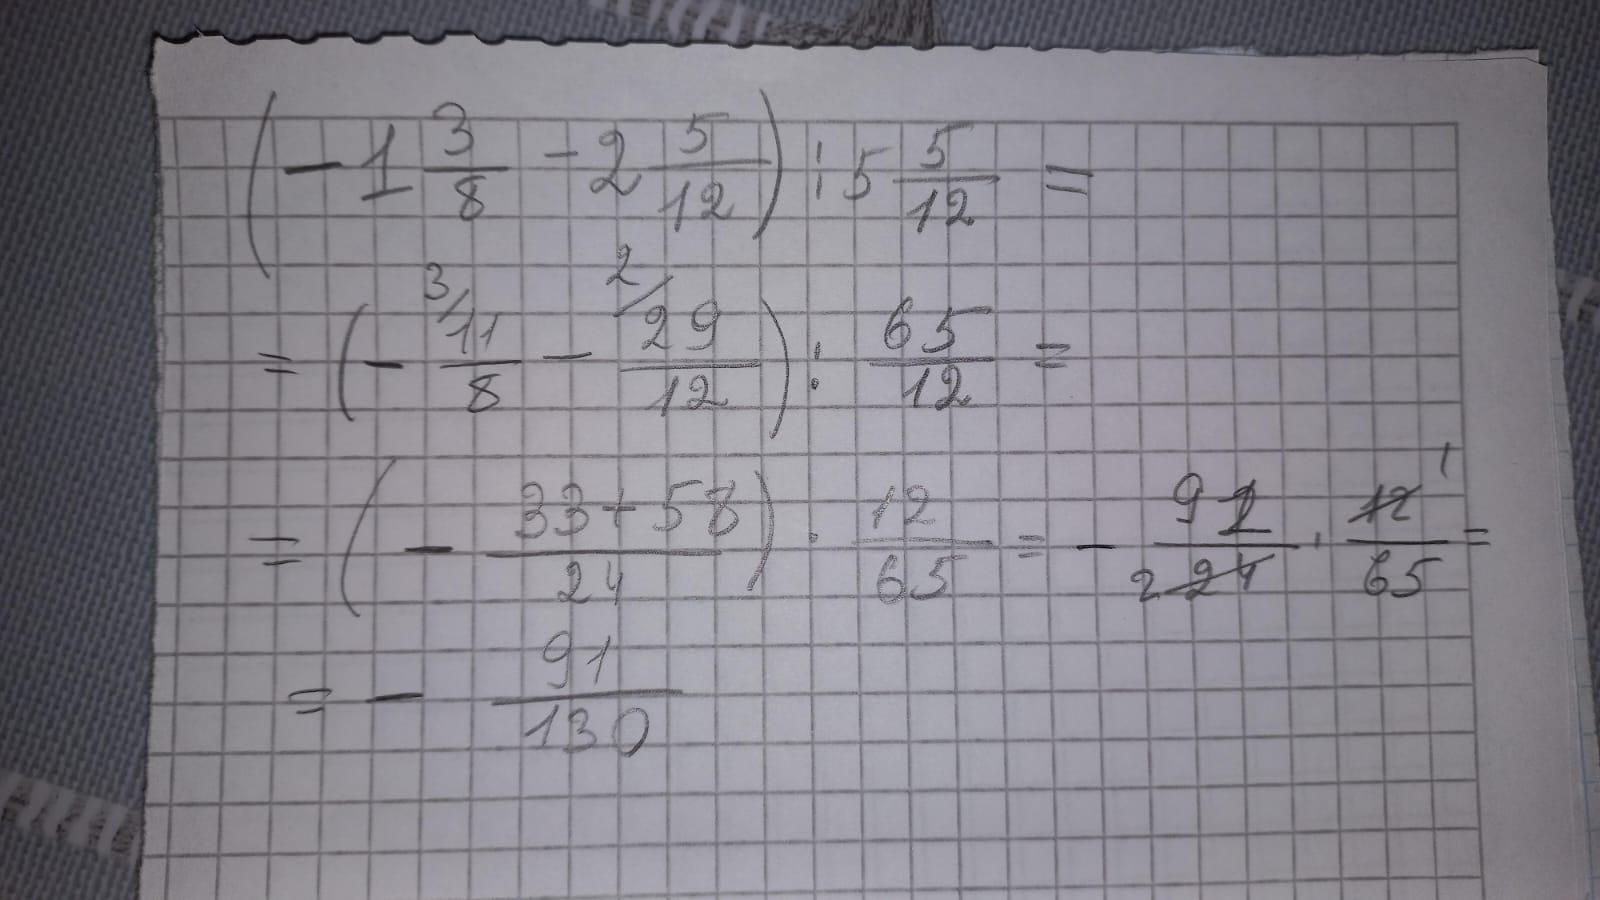 (- 1 3/8 - 2 5/12) : 5 5/12 =
= (- 3/ 11/8 - 2/ 29/12) : 65/12 =
= (- 33+58/24) · 12/65 = - 91/2 24 · 12 1/65 =
= - 91/130